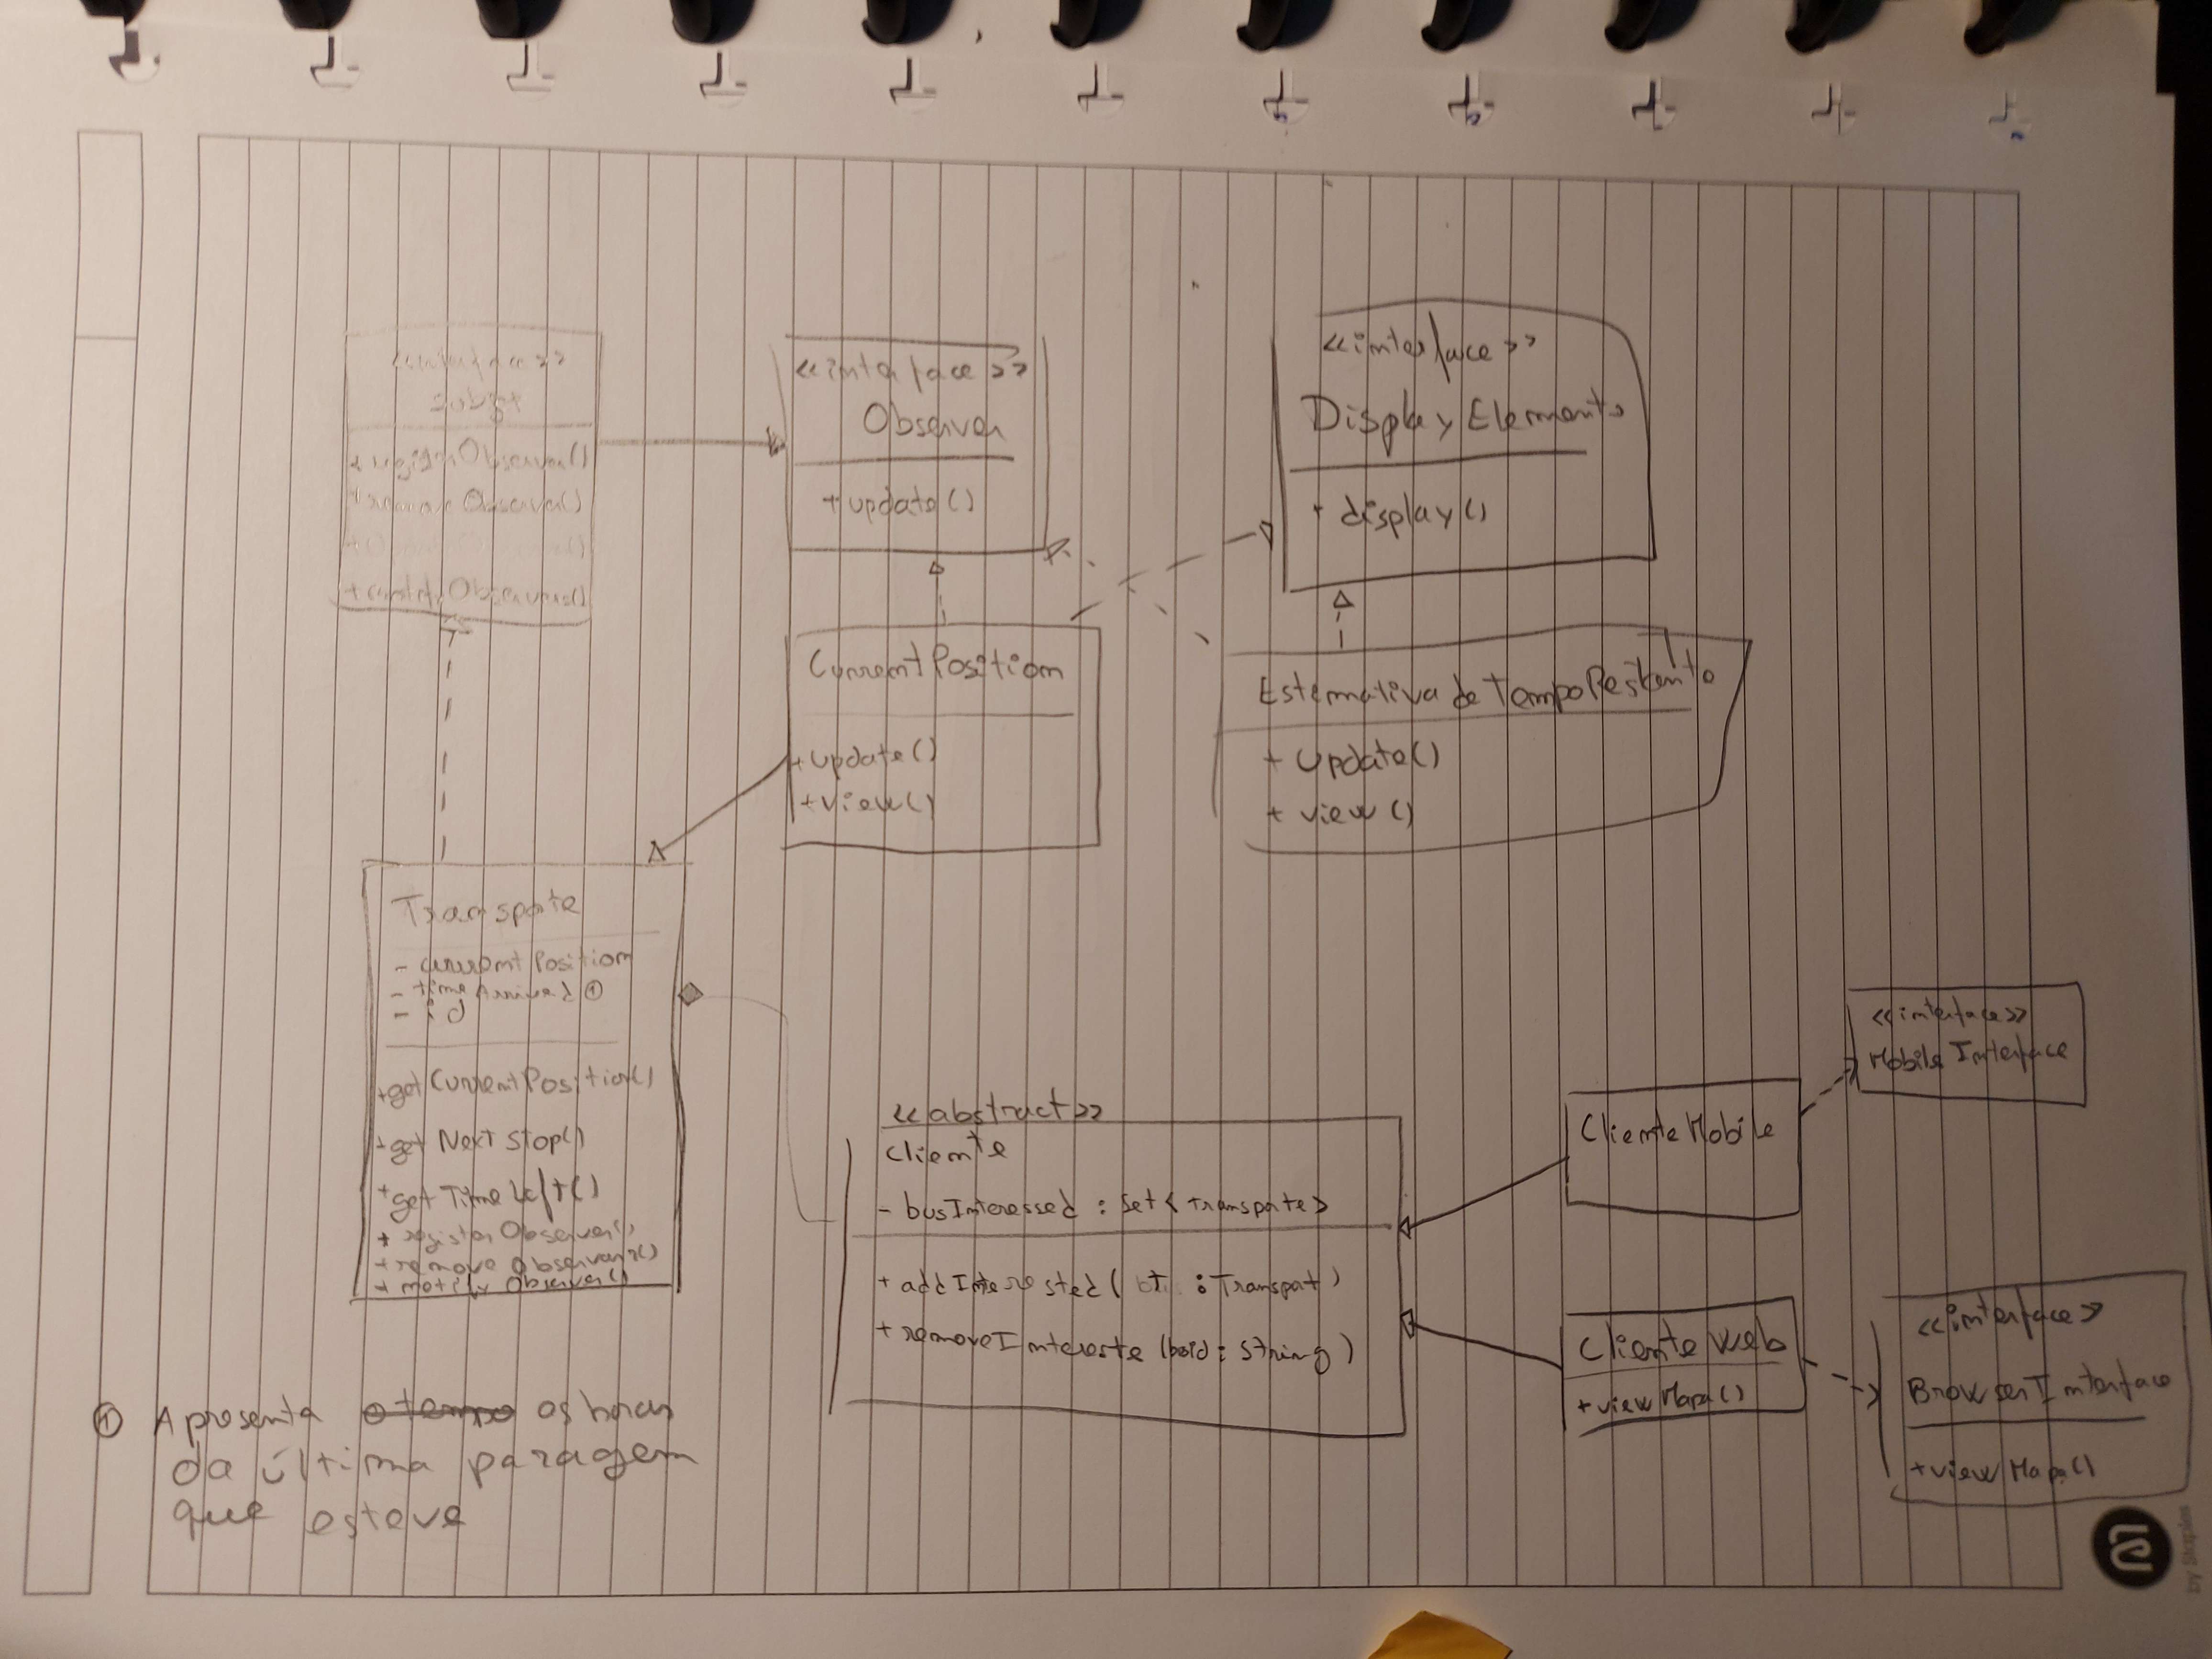 <<interface>>
+ registerObserver()
+ remove Observer()
+ notifyObservers()
<<interface>>
Observer
+ update()
<<interface>>
Display Elements
+ display()
CurrentPosition
+ update()
+ view()
Estemativa de Tempo Restante
+ update()
+ view()
Transporte
- currentPosition
- timeArrived ①
- id
+ getCurrentPosition()
+ get Next stop()
+ get Time Left()
+ registerObserver()
+ remove Observer()
+ notify Observer()
<<abstract>>
Cliente
- busInteressed : Set<transporte>
+ addInterested( : Transport)
+ removeIntereste (boid : String)
ClienteMobile
<<interface>>
Mobile Interface
Cliente Web
+ viewMapa()
<<interface>>
BrowserInterface
+ viewMapa()
① Apresenta o tempo as horas
da última paragem
que esteve
by Staples